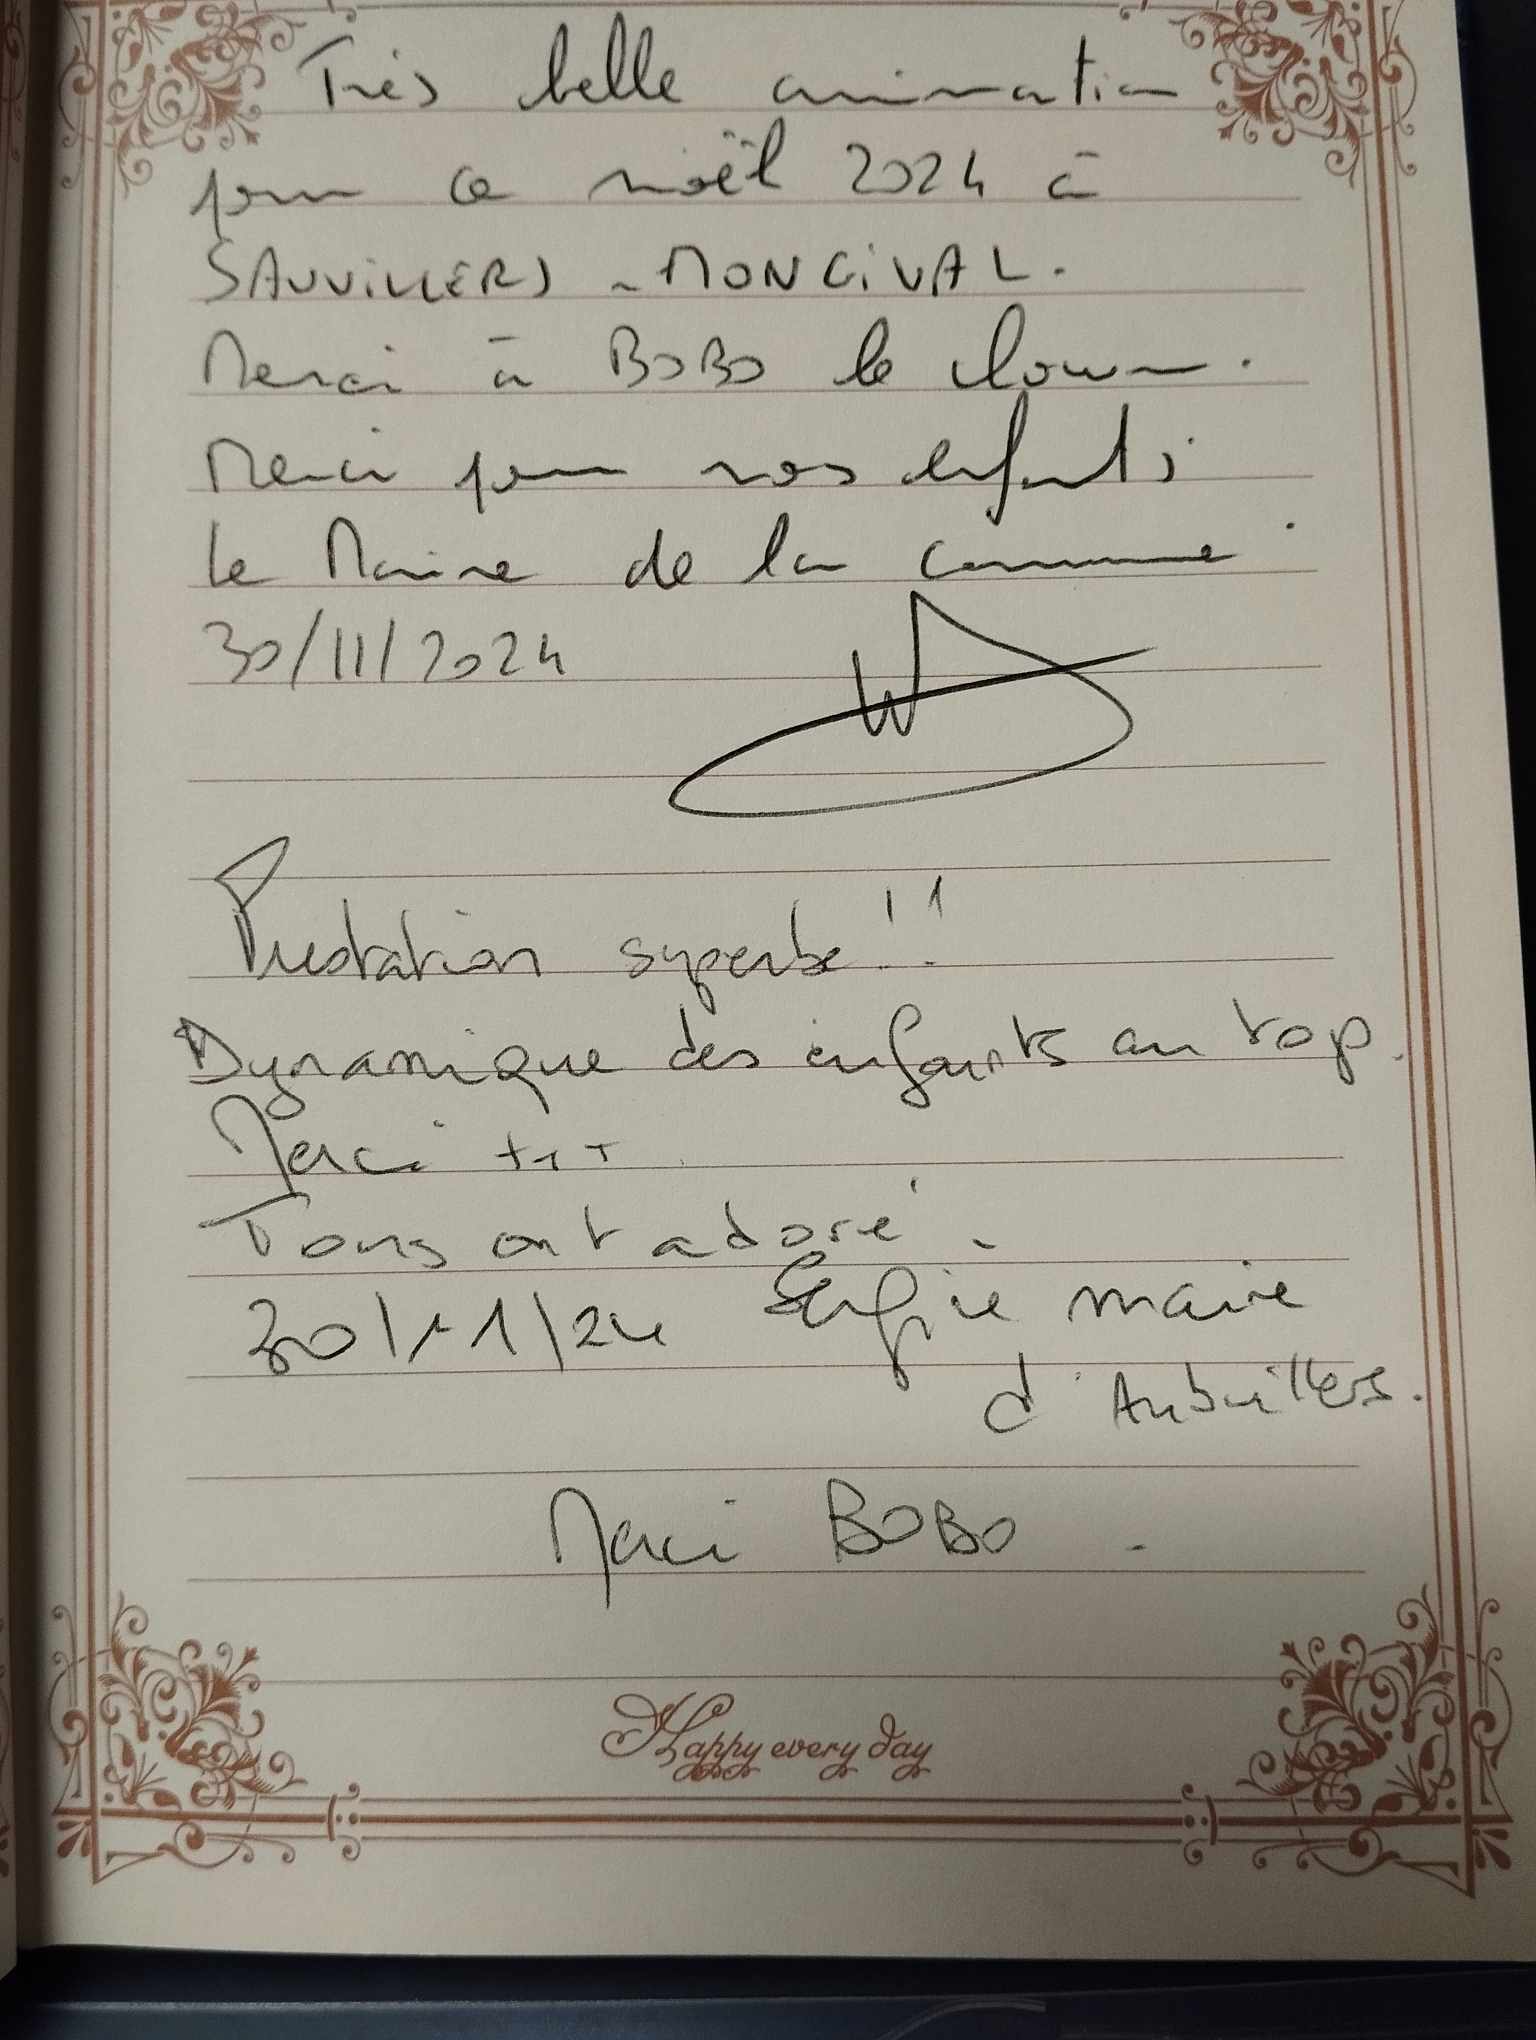 Très belle animation
pour ce noël 2024 à
SAUVILLERS - MONGIVAL.
Merci à BOBO le clown.
Merci pour nos enfants
Le Maire de la commune.
30/11/2024
Prestation superbe!!
Dynamique des enfants au top.
Merci +++
Tous ont adoré.
30/11/24 maire
d'Aubvillers.
Merci BOBO.
Happy every day